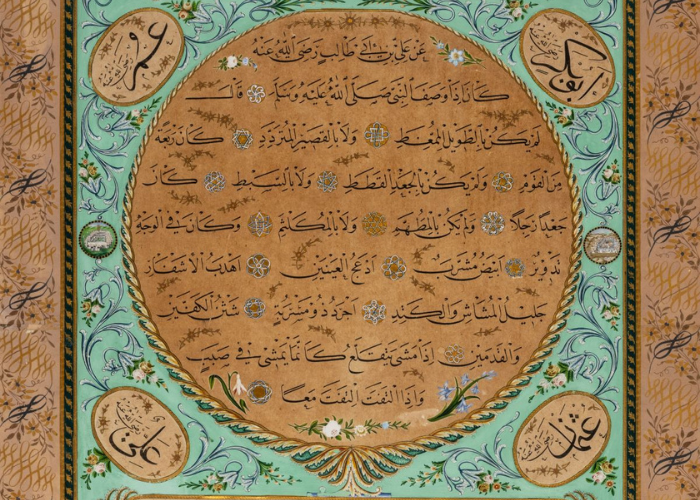 عمر
ابو بكر
عَنْ عَلِيِّ بْنِ اَبِي طَالِبٍ رَضِيَ اللهُ عَنْهُ
كَانَ اِذَا وَصَفَ النَّبِيَّ صَلَّى اللهُ عَلَيْهِ وَسَلَّمَ قَالَ
لَمْ يَكُنْ بِالطَّوِيلِ الْمُمَّغِطِ وَلَا بِالْقَصِيرِ الْمُتَرَدِّدِ كَانَ رَبْعَةً
مِنَ الْقَوْمِ وَلَمْ يَكُنْ بِالْجَعْدِ الْقَطَطِ وَلَا بِالسَّبِطِ كَانَ
جَعْدًا رَجِلًا وَلَمْ يَكُنْ بِالْمُطَهَّمِ وَلَا بِالْمُكَلْثَمِ وَكَانَ فِي الْوَجْهِ
تَدْوِيرٌ اَبْيَضُ مُشْرَبٌ اَدْعَجُ الْعَيْنَيْنِ اَهْدَبُ الْاَشْفَارِ
جَلِيلُ الْمُشَاشِ وَالْكَتَدِ اَجْرَدُ ذُو مَسْرُبَةٍ شَثْنُ الْكَفَّيْنِ
وَالْقَدَمَيْنِ اِذَا مَشَى يَتَقَلَّعُ كَاَنَّمَا يَمْشِي فِي صَبَبٍ
وَاِذَا الْتَفَتَ الْتَفَتَ مَعًا
عثمان
علي